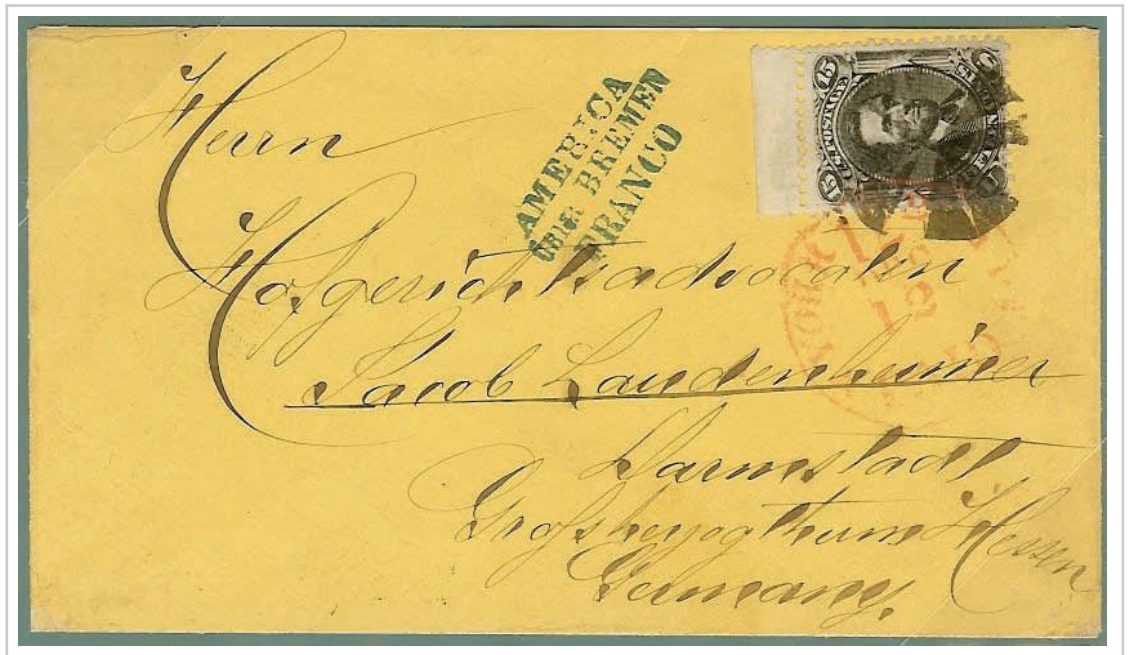 Herrn
AMERICA
ÜBER BREMEN
FRANCO
15 U.S. POSTAGE 15
Hofgerichtsadvocaten
Jacob Landenheimer
Darmstadt
Grofsherzogthum Hessen
Germany.